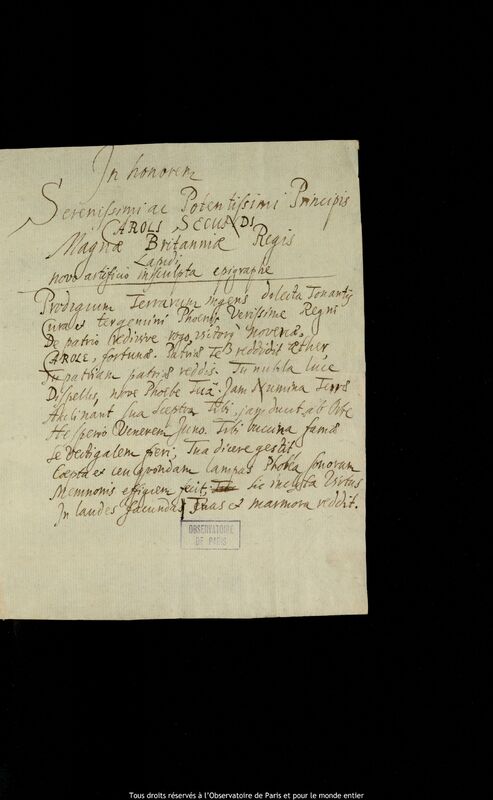 In honorem
Serenissimi ac Potentissimi Principis
CAROLI SECUNDI
Magnæ Britanniæ Regis
Lapidi
novo artificio insculpta epigraphe
Prodigium Terrarum ingens dilecta Tonantis
Cura tergemini Phœnix verissime Regni
De patrio redivive rogo, victor novercæ,
CAROLE, fortunæ. Patriæ Te reddidit æther
Tu patriam patriæ reddis. Tu nubila luce
Dispellis, nove Phoebe Tuâ. Jam Numina Terris
Acclinant sua sceptra Tibi, jam ducit ab Orbe
Hesperio Venerem Juno. Tibi buccina famæ
Se vectigalem fieri, Tua dicere gestit
Cœpta et ceu quondam lampas Phœbea sonoram
Memnonis effigiem fecit; sic inclyta Virtus
In laudes facundas Tuas et marmora reddit.
OBSERVATOIRE
DE PARIS
Tous droits réservés à l'Observatoire de Paris et pour le monde entier